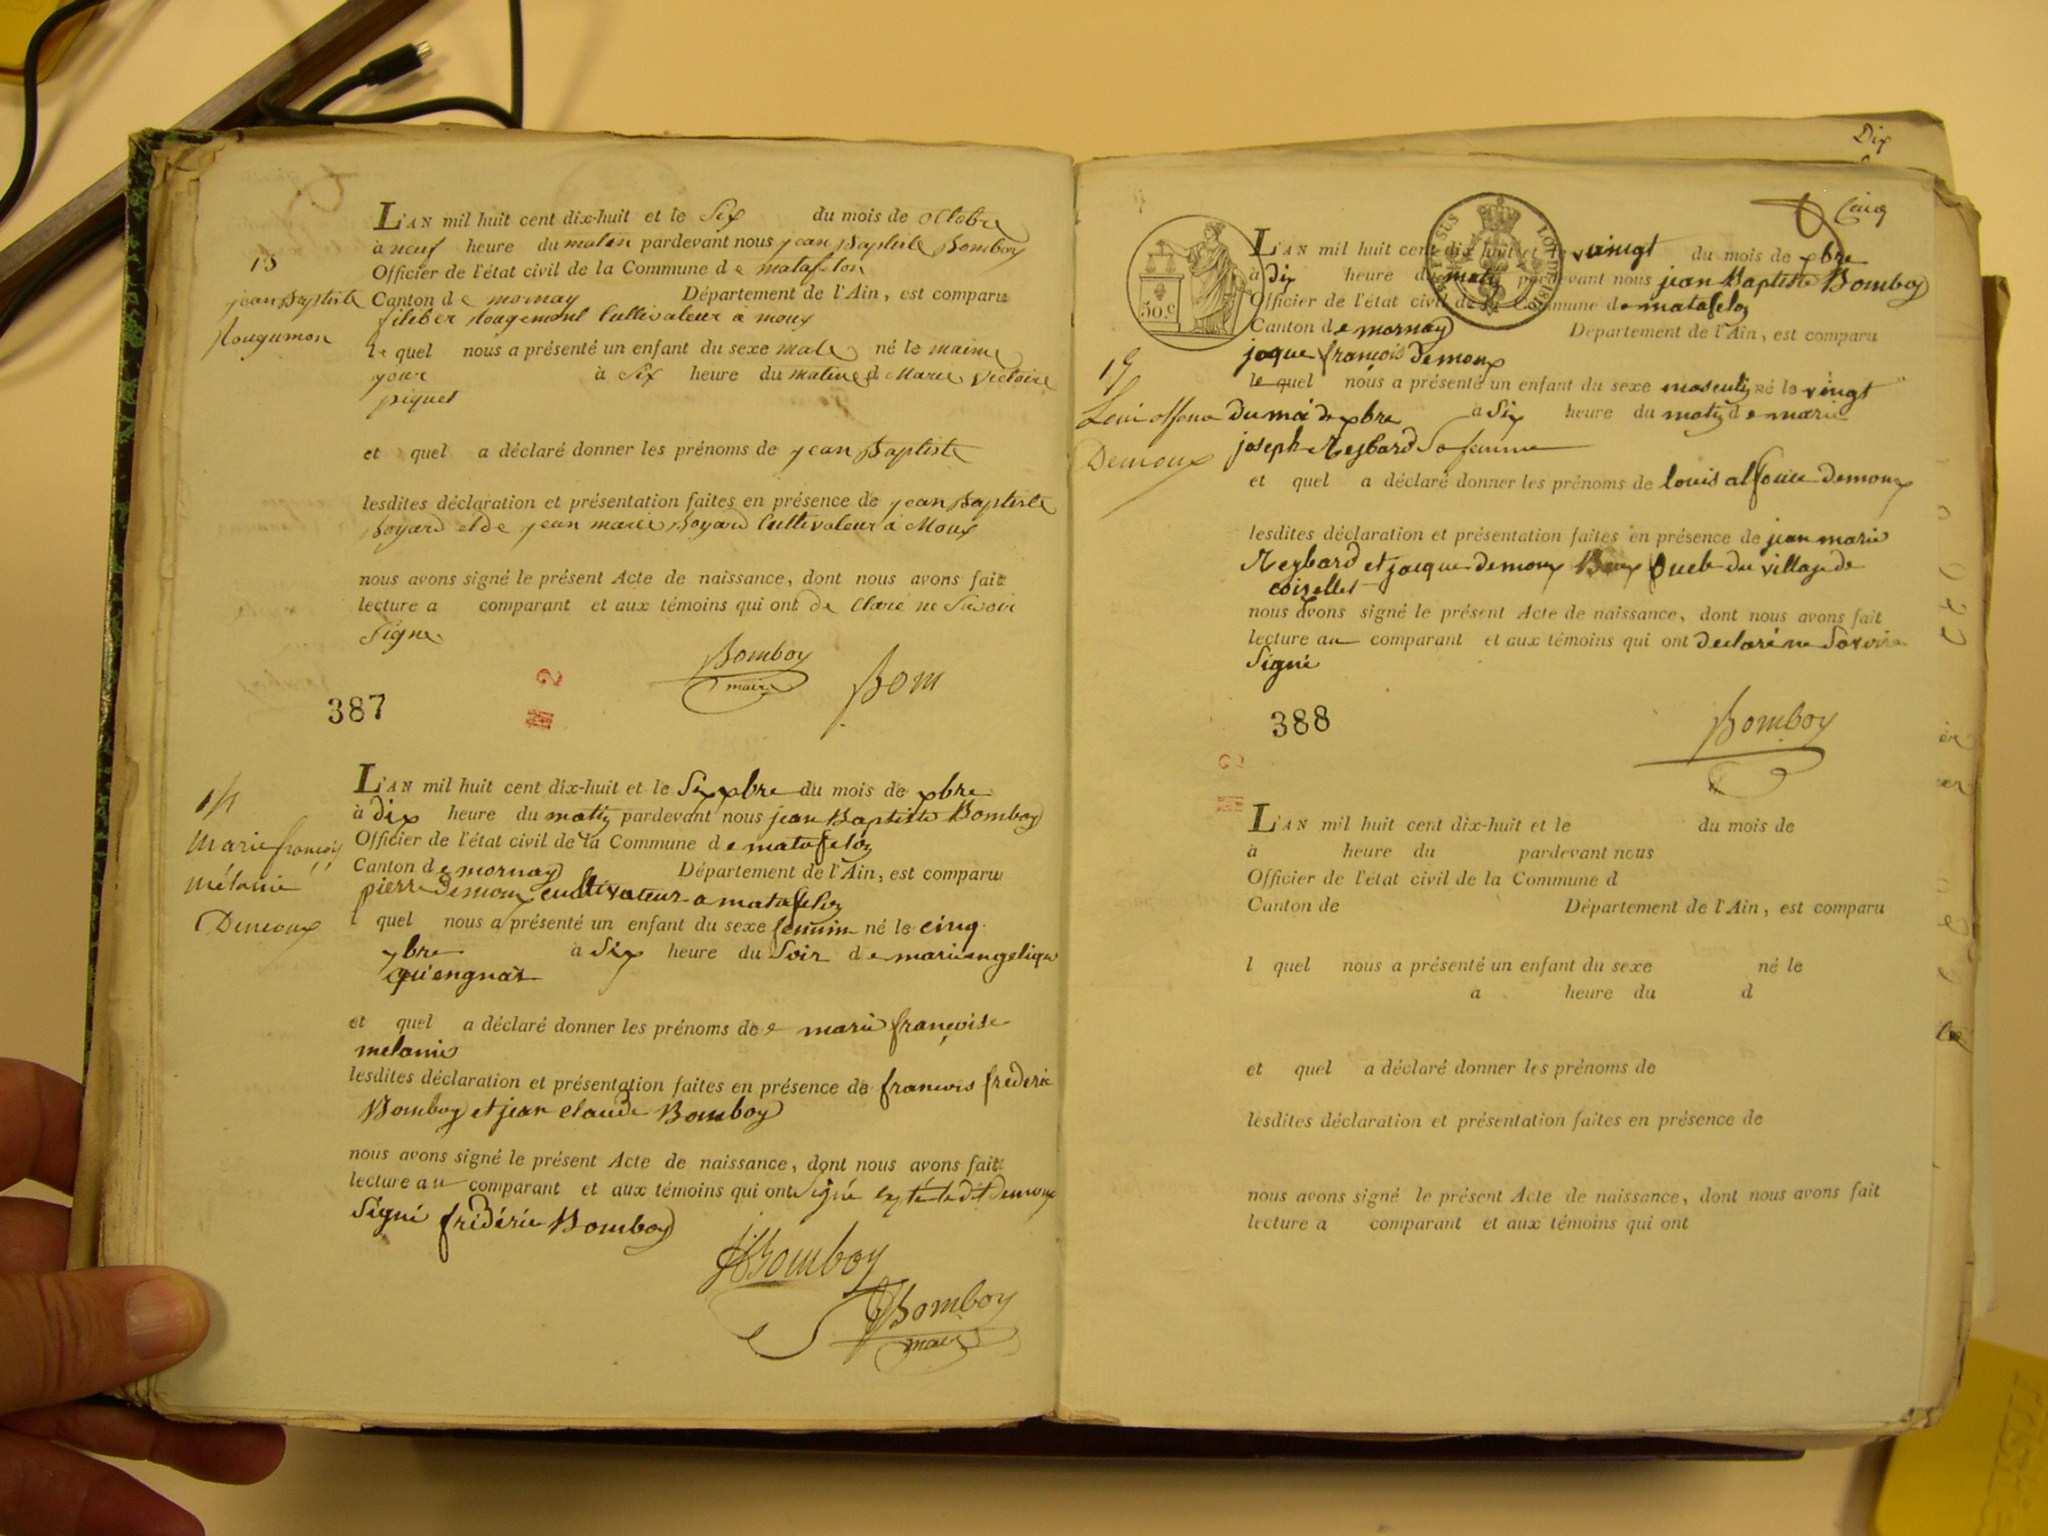 L'AN mil huit cent dix-huit et le Six du mois de octobre
à neuf heure du matin pardevant nous jean Baptiste Bomboy
Officier de l'état civil de la Commune de matafelon
Canton de mornay Département de l'Ain, est comparu
13
jean Baptiste
Rougemon
fileber Rougemont Cultivateur a moux
le quel nous a présenté un enfant du sexe male né le maime
jour à Six heure du matin d Marie victoire
piquet
et quel a déclaré donner les prénoms de jean Baptiste
lesdites déclaration et présentation faites en présence de jean Baptiste
Boyard et de jean marie Boyard Cultivateur à Moux
nous avons signé le présent Acte de naissance, dont nous avons fait
lecture a comparant et aux témoins qui ont de Claré ne Savoir
Signe
Bomboy
maire
Bom
387
2
L'AN mil huit cent dix-huit et le Six xbre du mois de xbre
à dix heure du matin pardevant nous jean Baptiste Bomboy
Officier de l'état civil de la Commune de matafelon
Canton de mornay Département de l'Ain, est comparu
14
Marie françois
Mélanie
Demoux
pierre Demoux cultivateur a matafelon
l quel nous a présenté un enfant du sexe feminin né le cinq
xbre à Six heure du Soir de marie angelique
et quel a déclaré donner les prénoms de marie françoise
melanie
lesdites déclaration et présentation faites en présence de francois frederic
Bomboy et jean claude Bomboy
nous avons signé le présent Acte de naissance, dont nous avons fait
lecture au comparant et aux témoins qui ont Signé ledit Demoux
Signé frédéric Bomboy
Bomboy
Bomboy
maire
Dix
Cinq
50.c
L'AN mil huit cent dix-huit et le vingt du mois de xbre
à dix heure du matin pardevant nous jean Baptiste Bomboy
Officier de l'état civil de la Commune de matafelon
Canton de mornay Département de l'Ain, est comparu
joque françois Demoux
le quel nous a présenté un enfant du sexe masculin né le vingt
15
Demoux
du moi de xbre à Six heure du matin de marie
joseph Reybard Sa femme
et quel a déclaré donner les prénoms de louis alfonce demoux
lesdites déclaration et présentation faites en présence de jean marie
Reybard et jacque demoux du village de
coiselet
nous avons signé le présent Acte de naissance, dont nous avons fait
lecture au comparant et aux témoins qui ont declaré ne Savoir
Signé
Bomboy
388
2
L'AN mil huit cent dix-huit et le du mois de
à heure du pardevant nous
Officier de l'état civil de la Commune d
Canton de Département de l'Ain, est comparu
l quel nous a présenté un enfant du sexe né le
a heure du d
et quel a déclaré donner les prénoms de
lesdites déclaration et présentation faites en présence de
nous avons signé le présent Acte de naissance, dont nous avons fait
lecture a comparant et aux témoins qui ont